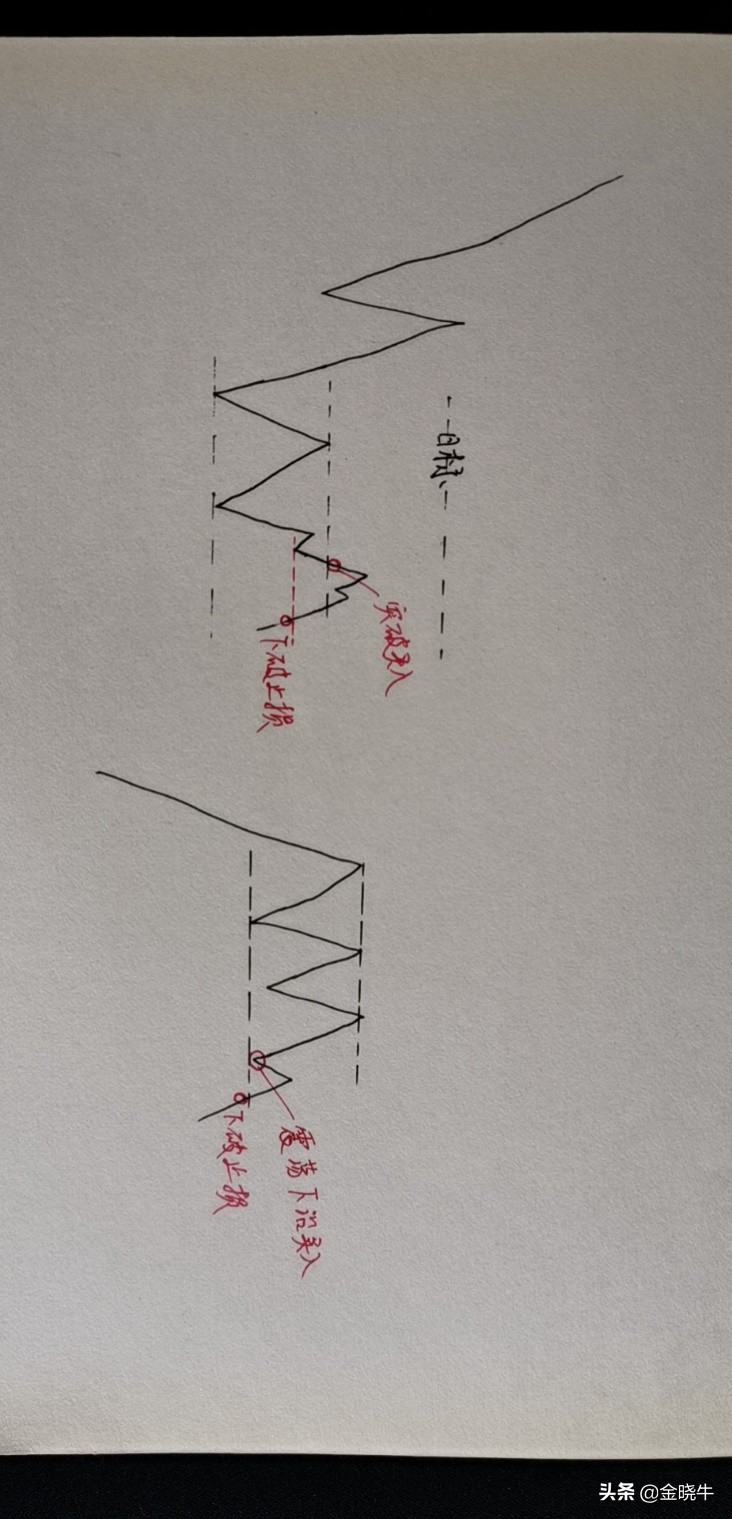 目标
突破买入
下破止损
震荡下沿买入
下破止损
头条 @金晓牛